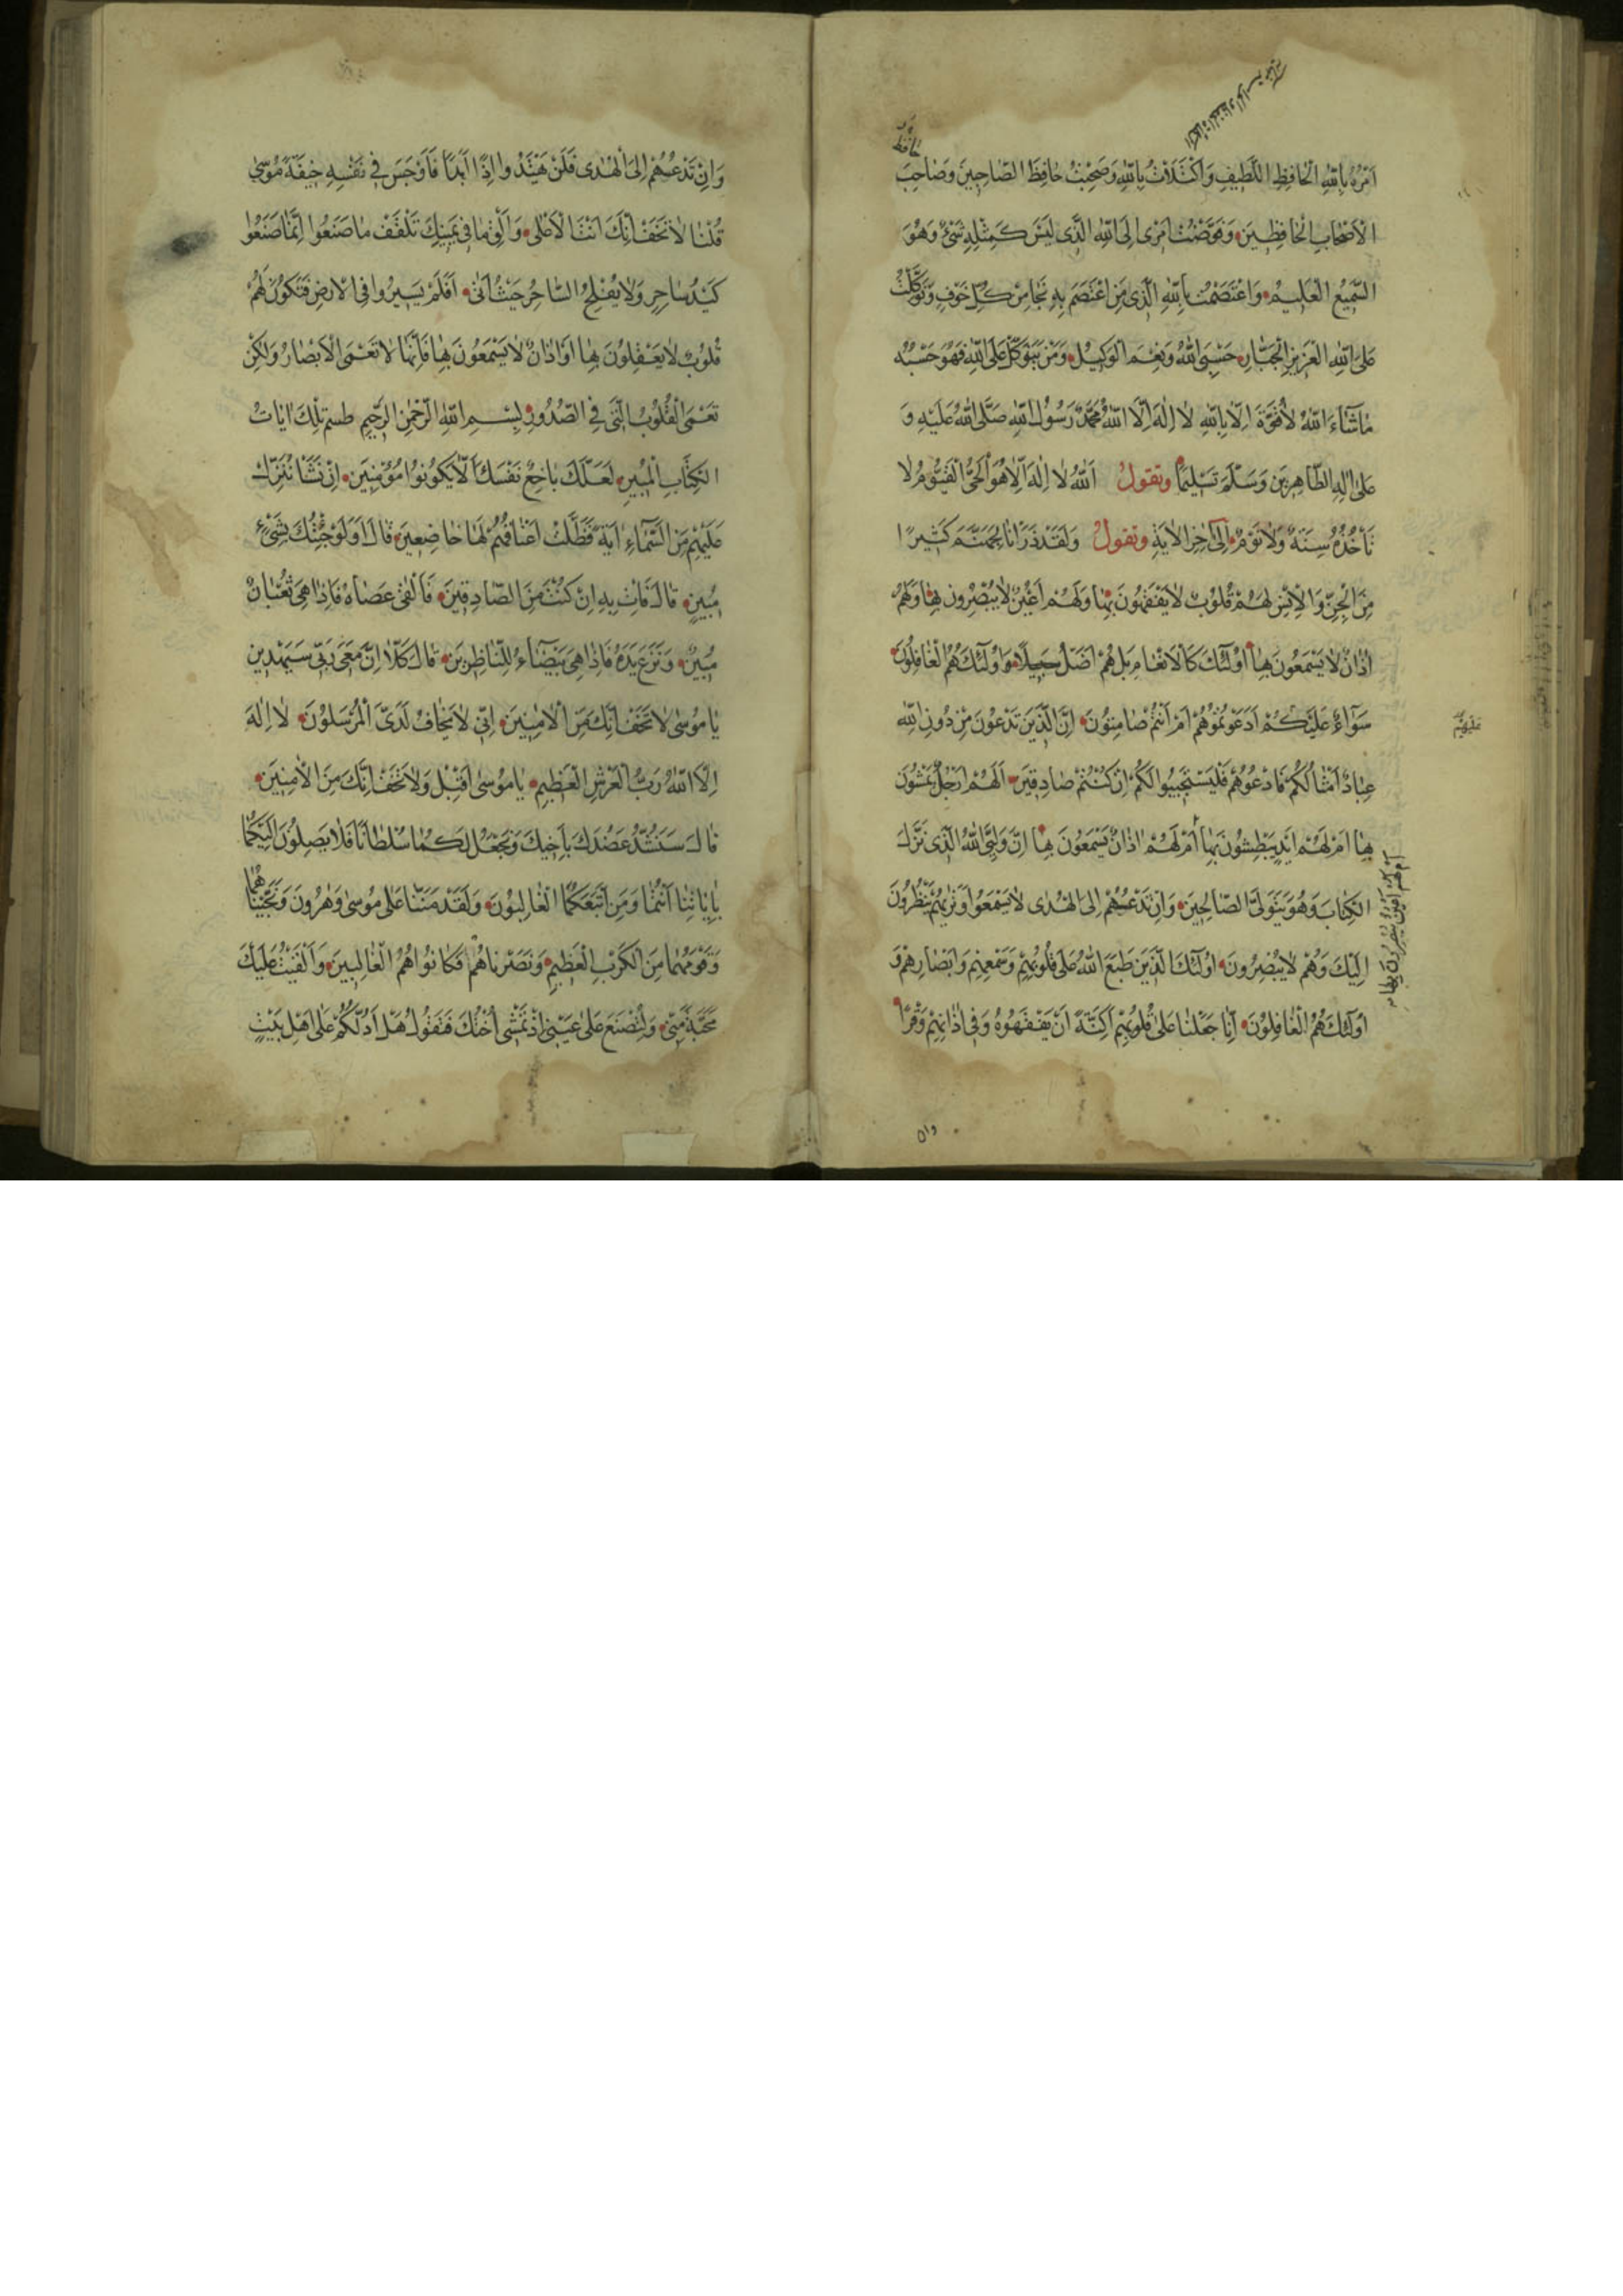 اَمْرُهُ بِاللهِ الْحَافِظِ اللَّطِيفِ وَاكْتَلَاْتُ بِاللهِ وَصَحِبْتُ حَافِظَ الصَّاحِبِينَ وَصَاحِبَ
الْاَصْحَابِ الْحَافِظِينَ وَفَوَّضْتُ اَمْرِى اِلَى اللهِ الَّذِى لَيْسَ كَمِثْلِهِ شَىْءٌ وَهُوَ
السَّمِيعُ الْعَلِيمُ وَاعْتَصَمْتُ بِاللهِ الَّذِى مَنِ اعْتَصَمَ بِهِ نَجَا مِنْ كُلِّ خَوْفٍ وَتَوَكَّلْتُ
عَلَى اللهِ الْعَزِيزِ الْجَبَّارِ حَسْبِىَ اللهُ وَنِعْمَ الْوَكِيلُ وَمَنْ يَتَوَكَّلْ عَلَى اللهِ فَهُوَ حَسْبُهُ
مَا شَآءَ اللهُ لَا قُوَّةَ اِلَّا بِاللهِ لَا اِلٰهَ اِلَّا اللهُ مُحَمَّدٌ رَسُولُ اللهِ صَلَّى اللهُ عَلَيْهِ وَ
عَلٰى اٰلِهِ الطَّاهِرِينَ وَسَلَّمَ تَسْلِيمًا وتقولُ اَللهُ لَا اِلٰهَ اِلَّا هُوَ الْحَىُّ الْقَيُّومُ لَا
تَاْخُذُهُ سِنَةٌ وَلَا نَوْمٌ اِلٰى اٰخِرِ الْاٰيَةِ وتقولُ وَلَقَدْ ذَرَاْنَا لِجَهَنَّمَ كَثِيرًا
مِنَ الْجِنِّ وَالْاِنْسِ لَهُمْ قُلُوبٌ لَا يَفْقَهُونَ بِهَا وَلَهُمْ اَعْيُنٌ لَا يُبْصِرُونَ بِهَا وَلَهُمْ
اٰذَانٌ لَا يَسْمَعُونَ بِهَا اُولٰئِكَ كَالْاَنْعَامِ بَلْ هُمْ اَضَلُّ سَبِيلًا وَاُولٰئِكَ هُمُ الْغَافِلُونَ
سَوَآءٌ عَلَيْكُمْ اَدَعَوْتُمُوهُمْ اَمْ اَنْتُمْ صَامِتُونَ اِنَّ الَّذِينَ تَدْعُونَ مِنْ دُونِ اللهِ
عِبَادٌ اَمْثَالُكُمْ فَادْعُوهُمْ فَلْيَسْتَجِيبُوا لَكُمْ اِنْ كُنْتُمْ صَادِقِينَ اَلَهُمْ اَرْجُلٌ يَمْشُونَ
بِهَا اَمْ لَهُمْ اَيْدٍ يَبْطِشُونَ بِهَا اَمْ لَهُمْ اٰذَانٌ يَسْمَعُونَ بِهَا اِنَّ وَلِيِّىَ اللهُ الَّذِى نَزَّلَ
الْكِتَابَ وَهُوَ يَتَوَلَّى الصَّالِحِينَ وَاِنْ تَدْعُهُمْ اِلَى الْهُدٰى لَا يَسْمَعُوا وَتَرٰيهُمْ يَنْظُرُونَ
اِلَيْكَ وَهُمْ لَا يُبْصِرُونَ اُولٰئِكَ الَّذِينَ طَبَعَ اللهُ عَلٰى قُلُوبِهِمْ وَسَمْعِهِمْ وَاَبْصَارِهِمْ وَ
اُولٰئِكَ هُمُ الْغَافِلُونَ اِنَّا جَعَلْنَا عَلٰى قُلُوبِهِمْ اَكِنَّةً اَنْ يَفْقَهُوهُ وَفِى اٰذَانِهِمْ وَقْرًا
اَمْ لَهُمْ اَعْيُنٌ يُبْصِرُونَ بِهَا
عَلَيْهِمْ
وان
وَاِنْ تَدْعُهُمْ اِلَى الْهُدٰى فَلَنْ يَهْتَدُوا اِذًا اَبَدًا فَاَوْجَسَ فِى نَفْسِهِ خِيفَةً مُوسٰى
قُلْنَا لَا تَخَفْ اِنَّكَ اَنْتَ الْاَعْلٰى وَاَلْقِ مَا فِى يَمِينِكَ تَلْقَفْ مَا صَنَعُوا اِنَّمَا صَنَعُوا
كَيْدُ سَاحِرٍ وَلَا يُفْلِحُ السَّاحِرُ حَيْثُ اَتٰى اَفَلَمْ يَسِيرُوا فِى الْاَرْضِ فَتَكُونَ لَهُمْ
قُلُوبٌ لَا يَعْقِلُونَ بِهَا اَوْ اٰذَانٌ لَا يَسْمَعُونَ بِهَا فَاِنَّهَا لَا تَعْمَى الْاَبْصَارُ وَلٰكِنْ
تَعْمَى الْقُلُوبُ الَّتِى فِى الصُّدُورِ بِسْمِ اللهِ الرَّحْمٰنِ الرَّحِيمِ طسم تِلْكَ اٰيَاتُ
الْكِتَابِ الْمُبِينِ لَعَلَّكَ بَاخِعٌ نَفْسَكَ اَلَّا يَكُونُوا مُؤْمِنِينَ اِنْ نَشَاْ نُنَزِّلْ
عَلَيْهِمْ مِنَ السَّمَآءِ اٰيَةً فَظَلَّتْ اَعْنَاقُهُمْ لَهَا خَاضِعِينَ قَالَ اَوَلَوْ جِئْتُكَ بِشَىْءٍ
مُبِينٍ قَالَ فَاْتِ بِهِ اِنْ كُنْتَ مِنَ الصَّادِقِينَ فَاَلْقٰى عَصَاهُ فَاِذَا هِىَ ثُعْبَانٌ
مُبِينٌ وَنَزَعَ يَدَهُ فَاِذَا هِىَ بَيْضَآءُ لِلنَّاظِرِينَ قَالَ كَلَّا اِنَّ مَعِىَ رَبِّى سَيَهْدِينِ
يَا مُوسٰى لَا تَخَفْ اِنَّكَ مِنَ الْاٰمِنِينَ اِنِّى لَا يَخَافُ لَدَىَّ الْمُرْسَلُونَ لَا اِلٰهَ
اِلَّا اللهُ رَبُّ الْعَرْشِ الْعَظِيمِ يَا مُوسٰى اَقْبِلْ وَلَا تَخَفْ اِنَّكَ مِنَ الْاٰمِنِينَ
قَالَ سَنَشُدُّ عَضُدَكَ بِاَخِيكَ وَنَجْعَلُ لَكُمَا سُلْطَانًا فَلَا يَصِلُونَ اِلَيْكُمَا
بِاٰيَاتِنَا اَنْتُمَا وَمَنِ اتَّبَعَكُمَا الْغَالِبُونَ وَلَقَدْ مَنَنَّا عَلٰى مُوسٰى وَهٰرُونَ وَنَجَّيْنَاهُمَا
وَقَوْمَهُمَا مِنَ الْكَرْبِ الْعَظِيمِ وَنَصَرْنَاهُمْ فَكَانُوا هُمُ الْغَالِبِينَ وَاَلْقَيْتُ عَلَيْكَ
مَحَبَّةً مِنِّى وَلِتُصْنَعَ عَلٰى عَيْنِى اِذْ تَمْشِى اُخْتُكَ فَتَقُولُ هَلْ اَدُلُّكُمْ عَلٰى اَهْلِ بَيْتٍ